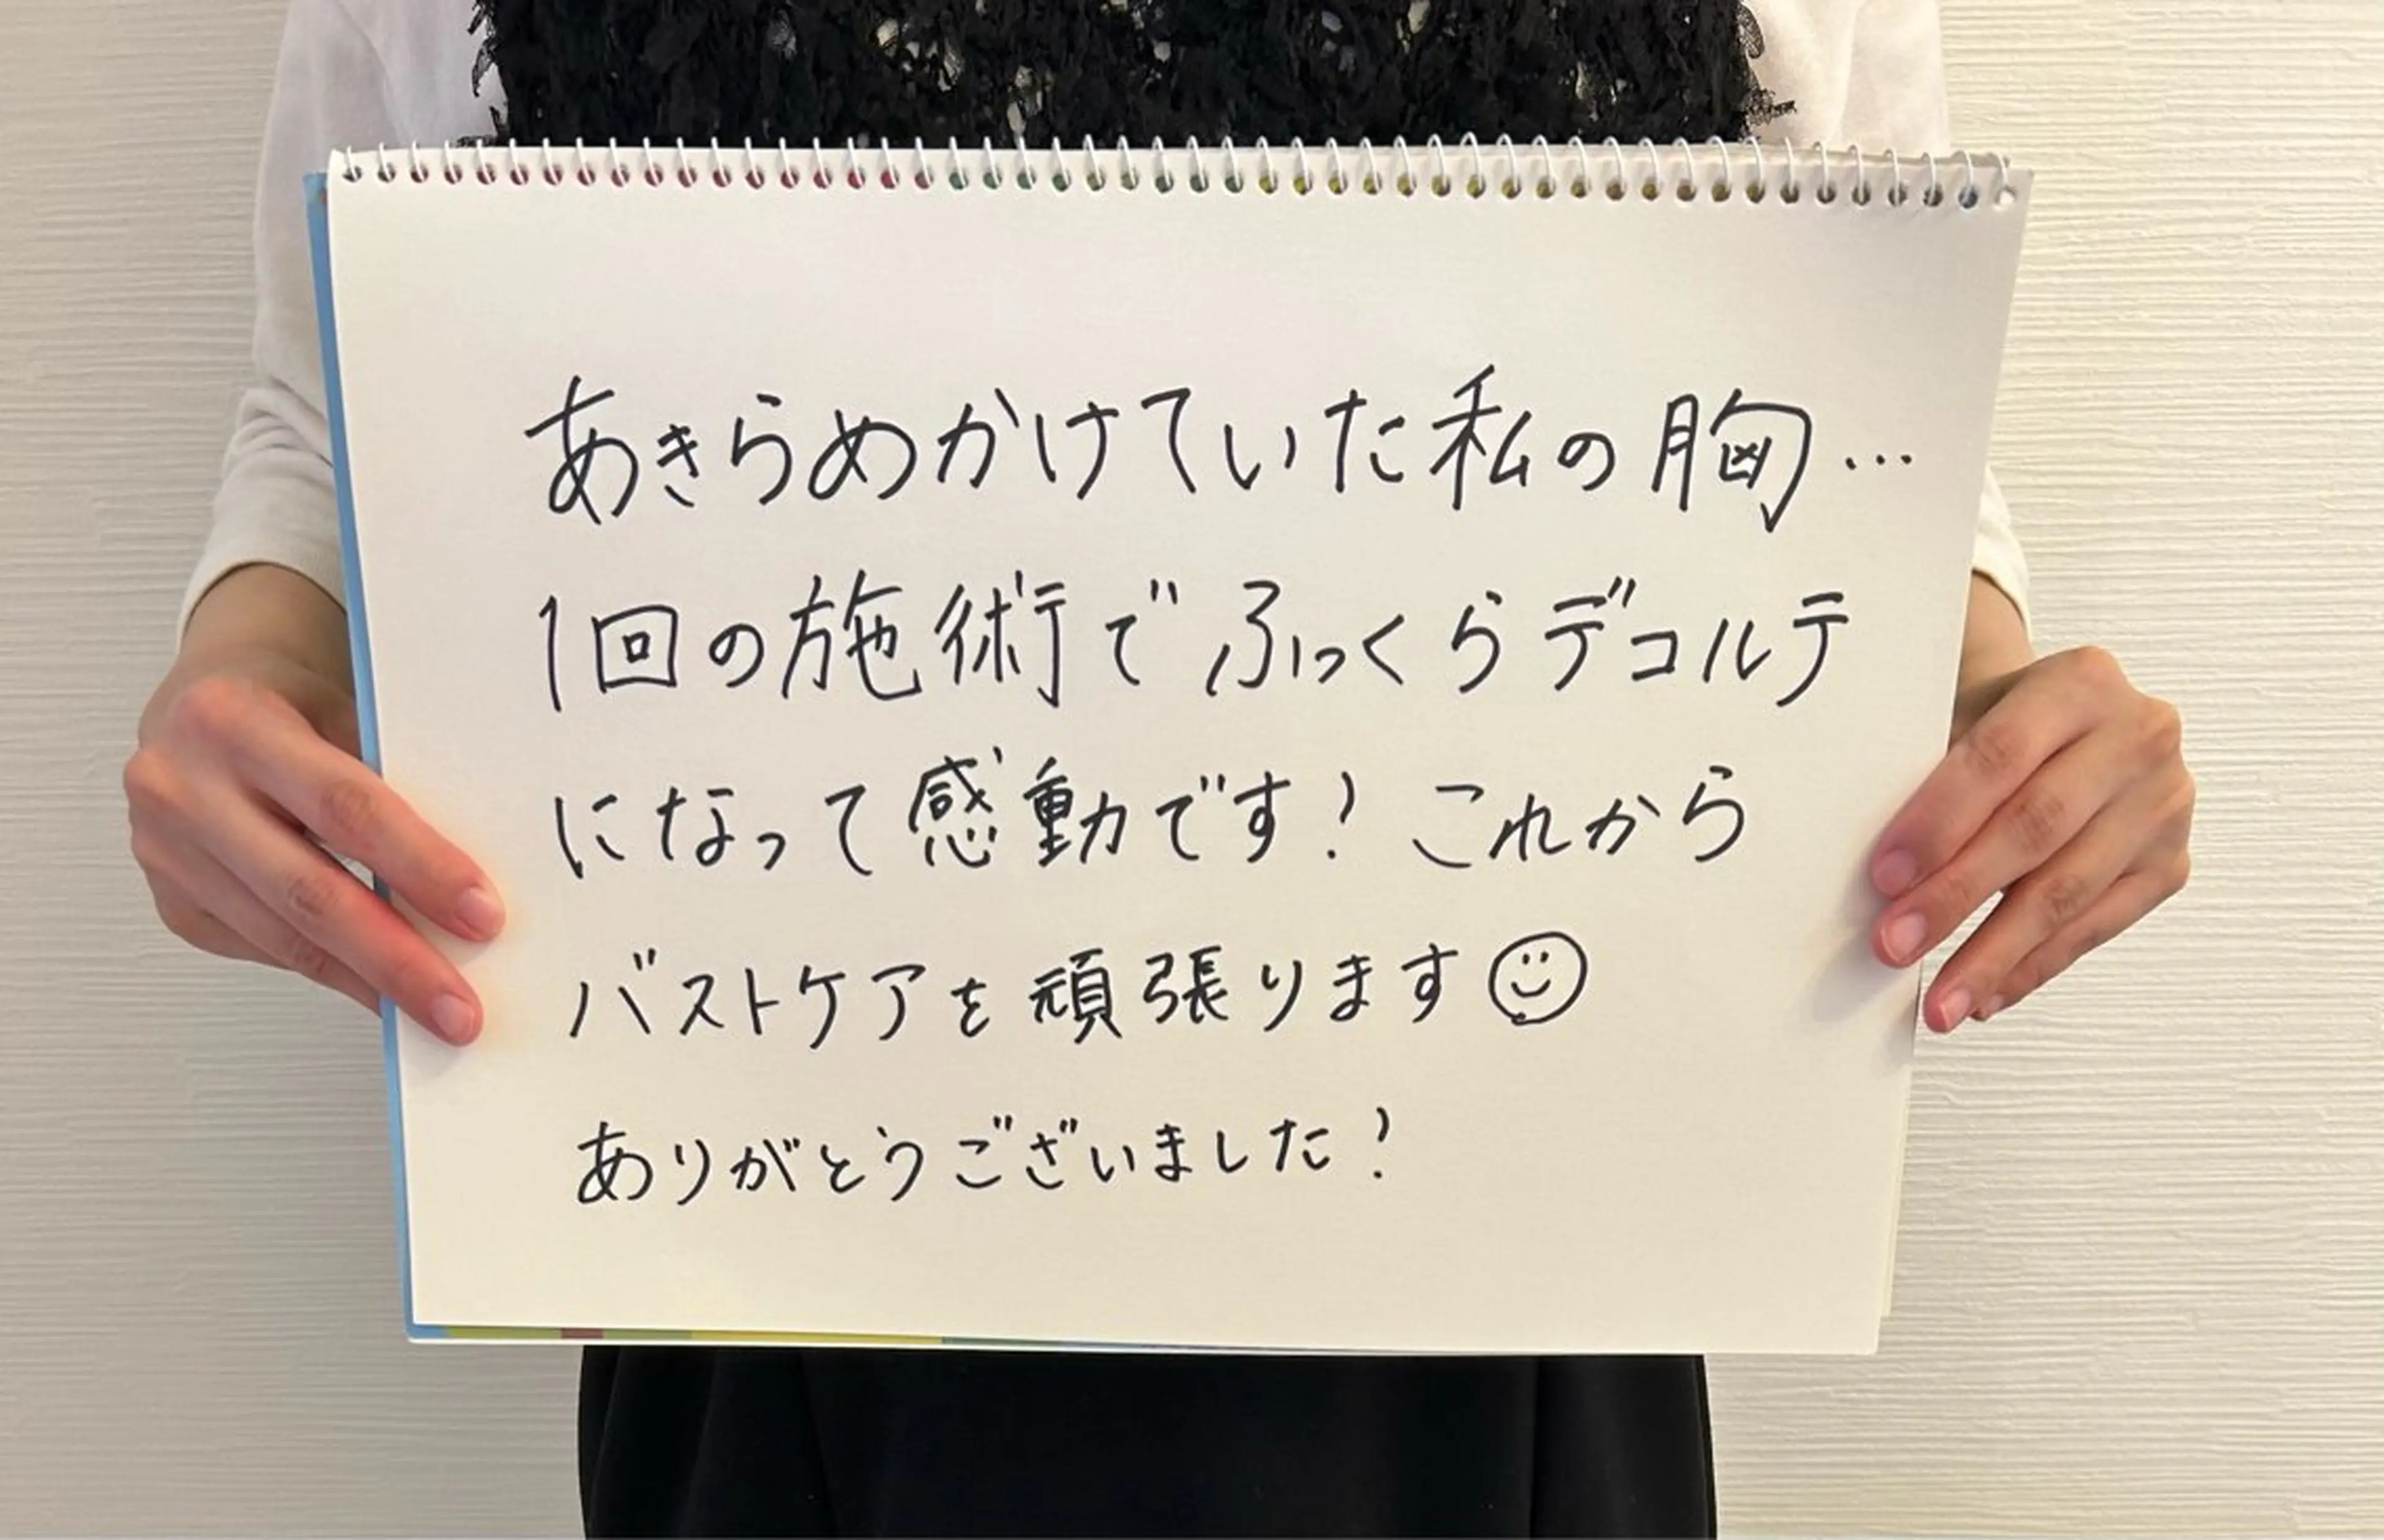 あきらめかけていた私の胸…
1回の施術でふっくらデコルテ
になって感動です！これから
バストケアを頑張ります☺
ありがとうございました！